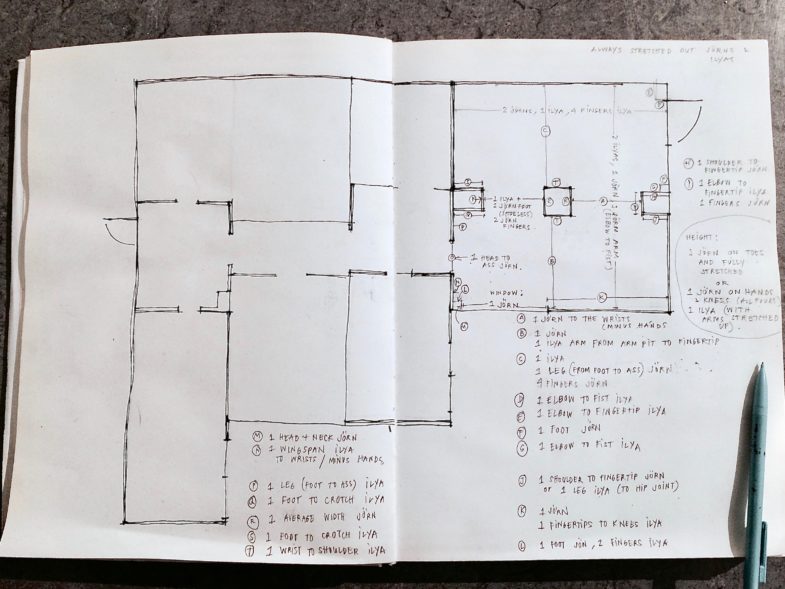 ALWAYS STRETCHED OUT JÖRNS &
ILYAS
2 JÖRNS, 1 ILYA, 4 FINGERS ILYA
2 ILYAS, 1 JÖRN, 1 JÖRN ARM
(ELBOW TO FIST)
1 ILYA +
1 JÖRN FOOT
(SHOELESS)
2 JÖRN
FINGERS
1 HEAD TO
ASS JÖRN.
WINDOW:
1 JÖRN
H 1 SHOULDER TO
FINGERTIP JÖRN
I 1 ELBOW TO
FINGERTIP ILYA
1 FINGERS JÖRN
HEIGHT:
1 JÖRN ON TOES
AND FULLY
STRETCHED
OR
1 JÖRN ON HANDS
& KNEES (ALL FOURS)
1 ILYA (WITH
ARMS STRETCHED
UP).
A 1 JÖRN TO THE WRISTS
(MINUS HANDS
B 1 JÖRN
1 ILYA ARM FROM ARM PIT TO FINGERTIP
C 1 ILYA
1 LEG (FROM FOOT TO ASS) JÖRN
4 FINGERS JÖRN
D 1 ELBOW TO FIST ILYA
E 1 ELBOW TO FINGERTIP ILYA
F 1 FOOT JÖRN
G 1 ELBOW TO FIST ILYA
J 1 SHOULDER TO FINGERTIP JÖRN
OR 1 LEG ILYA (TO HIP JOINT)
K 1 JÖRN
1 FINGERTIPS TO KNEES ILYA
L 1 FOOT JÖN, 2 FINGERS ILYA
M 1 HEAD + NECK JÖRN
N 1 WINGSPAN ILYA
TO WRISTS / MINUS HANDS
P 1 LEG (FOOT TO ASS) ILYA
Q 1 FOOT TO CROTCH ILYA
R 1 AVERAGE WIDTH JÖRN
S 1 FOOT TO CROTCH ILYA
T 1 WRIST TO SHOULDER ILYA